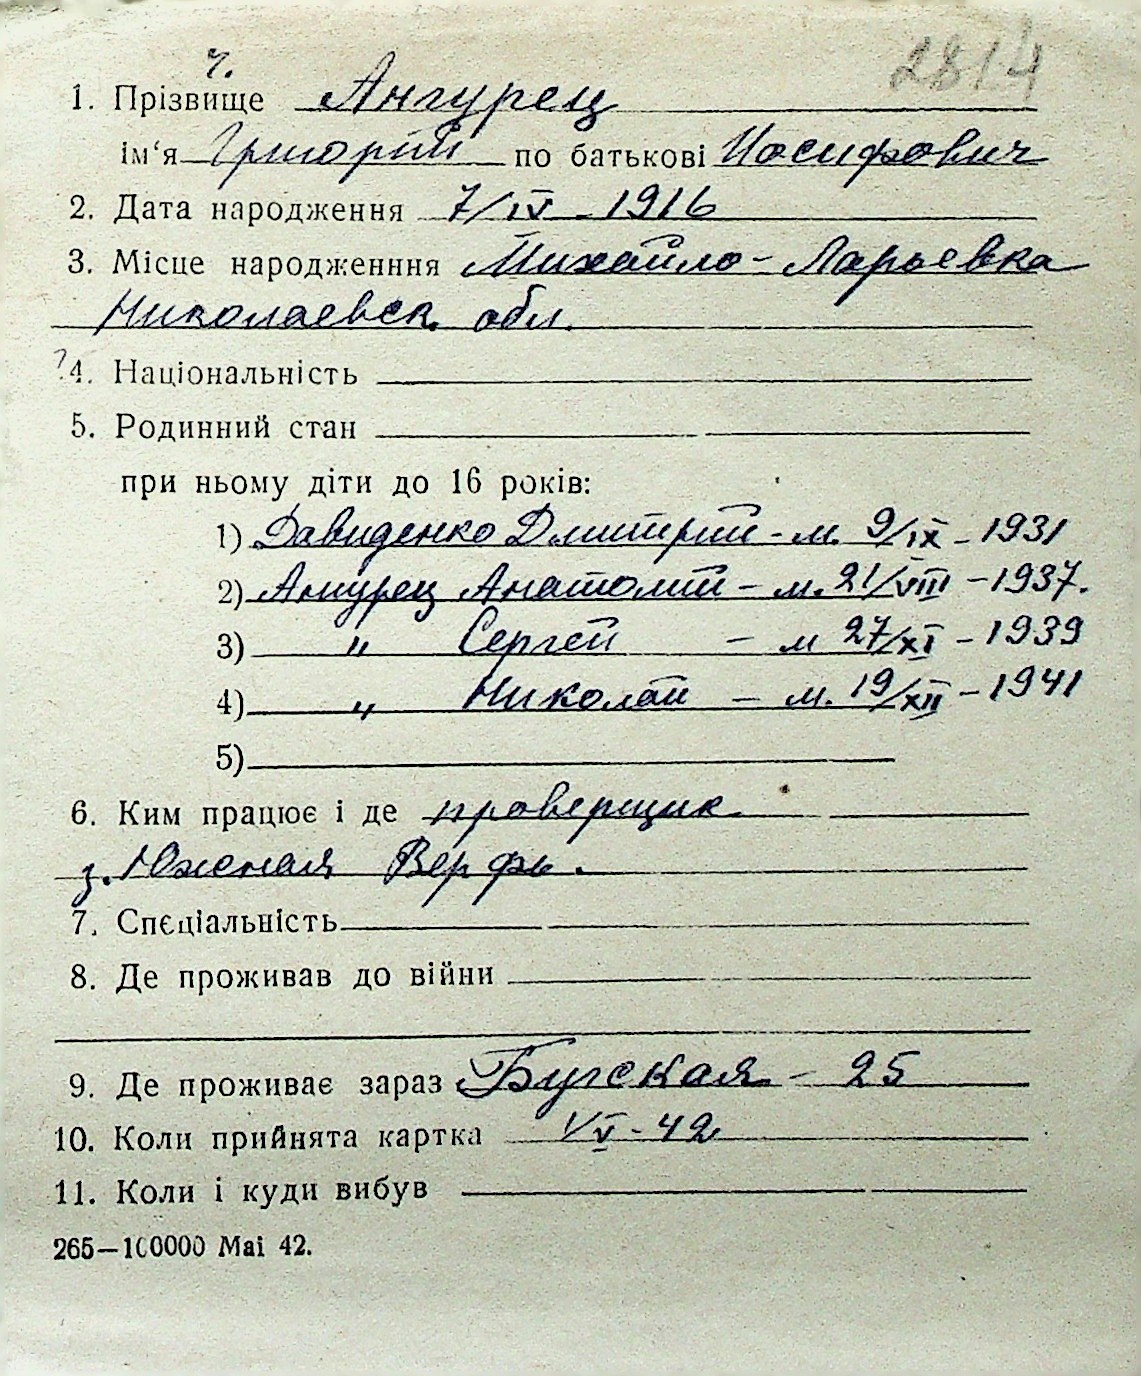 2814
ч.
1. Прізвище Ангурец
ім‘я Григорий по батькові Иосифович
2. Дата народження 7/IV - 1916
3. Місце народженння Михайло-Ларьевка
Николаевск. обл.
?4. Національність
5. Родинний стан
при ньому діти до 16 років:
1) Давиденко Дмитрий - м. 9/IX - 1931
2) Ангурец Анатолий - м. 21/VIII - 1937.
3) " Сергей - м 27/XI - 1939
4) " Николай - м. 19/XII - 1941
5)
6. Ким працює і де проверщик
з. Южная Верфь.
7. Спєціальність
8. Де проживав до війни
9. Де проживає зараз Бугская - 25
10. Коли прийнята картка V - 42
11. Коли і куди вибув
265—100000 Mai 42.